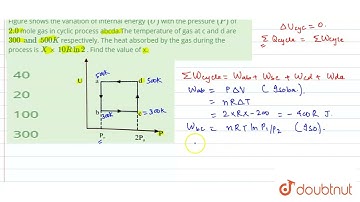 Figure shows the variation of internal energy (U) with the pressure (P) of
2.0 mole gas in cyclic process abcda. The temperature of gas at c and d are
300 and 500K respectively. The heat absorbed by the gas during the
process is X × 10R ln 2. Find the value of x.
40
20
100
300
U
500K
a
d 500K
b
300K
c = 300K
P₁
2P₁
P
ΔUcycle = 0.
Σ Qcycle = Σ Wcycle
Σ Wcycle = Wab + Wbc + Wcd + Wda
Wab = PΔV (Isobar).
= nRΔT
= 2×R×-200 = -400R J.
Wbc = nRT ln P₁/P₂ (Iso).
doubtnut